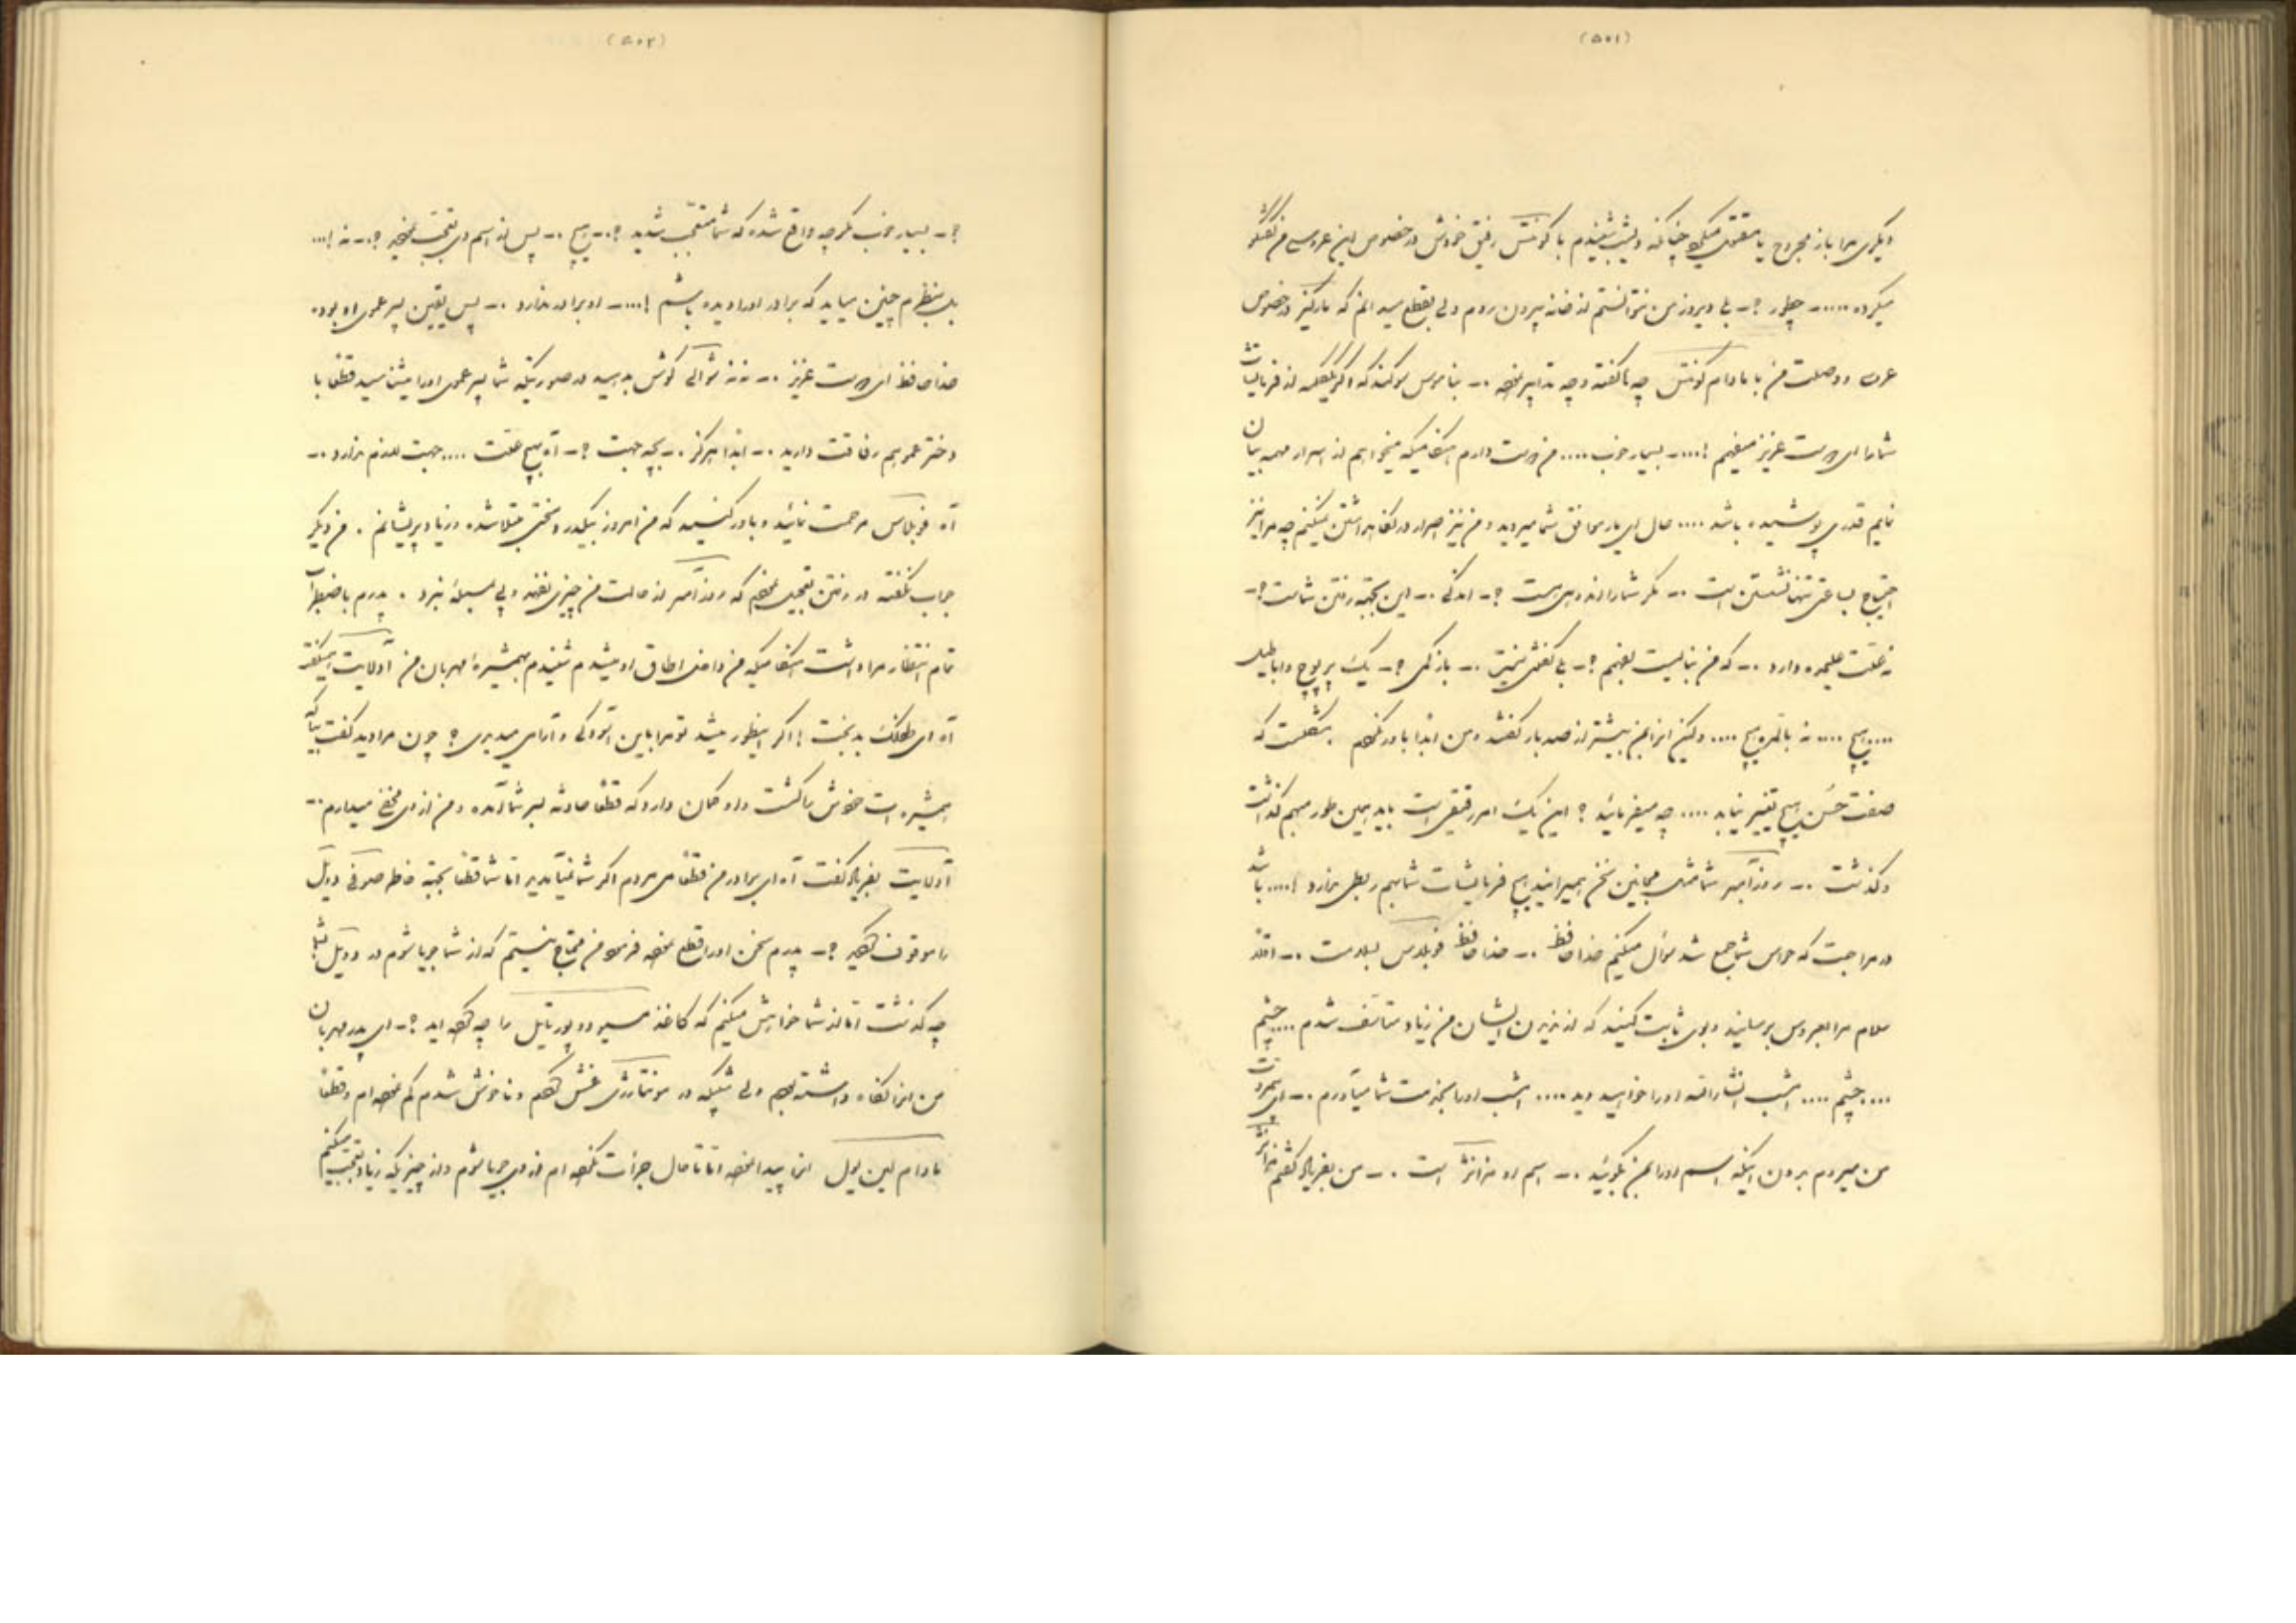 (۵۰۱)
دیگری مرا باز مجروح یا مقتول میکند چنانکه دیشب شنیدم با کونتس رفیق خودش در خصوص این عروسی من گفتگو
میکرده .... ـ چطور ؟ ـ بلی دیروز من نتوانستم از خانه بیرون روم ولی بقطع میدانم که مارکیز در خصوص
عرب و وصلت من با مادام کونتس چه گفته و چه تدابیر نموده .ـ بناموس سوگند که اگر یک کلمه از فرمایشات
شما را ای دوست عزیز میفهمم !....ـ بسیار خوب .... من دوست دارم هنگامیکه میخواهم از اسرار مهمه بیان
نمایم قدری پوشیده باشد .... حال این بار موافق شما میروید و من نیز اصرار در نگاهداشتن نمیکنم چه مرا نیز
احتیاج بساعتی تنها نشستن است .ـ مگر شما را اندوهی هست ؟ـ اندکی .ـ این بجهة رفتن شماست ؟ـ
نه علت علیحده دارد .ـ که من نبایست بفهمم ؟ـ بی گفتگو نیز .ـ بازگی ؟ـ یک پر پوچ و اباطیل
.... هیچ .... نه بالمره هیچ .... ولیکن این را بمن بیشتر از صد بار گفتند و من ابدا باور نکردم . مشکلست که
صفت حسن هیچ تغییر نیابد .... چه میفرمائید ؟ این یک امر دقیقی است باید همین طور مبهم گذاشت
و گذشت .ـ روز آمبر شما مثل مجانین سخن میرانید هیچ فرمایشات شما بهم ربطی ندارد !.... باشد
در مراجعت که حواس شما جمع شد سؤال میکنم خدا حافظ .ـ خدا حافظ فوبلاس بسلامت .ـ اقلا
سلام مرا بعروس برسانید و بوی ثابت کنید که از ندیدن ایشان من زیاد متأسف شدم .... چشم
.... چشم .... امشب انشاءالله او را خواهید دید .... امشب او را بخدمت شما میآورم .ـ ای بیمروت
من میروم بدون اینکه اسم او را بمن بگوئید .ـ اسم او ژوانژ است .ـ من بفریاد گفتم ژوانژ
(۵۰۲)
؟ـ بسیار خوب مگر چه واقع شده که شما متعجب شدید ؟.ـ هیچ .ـ پس از اسم وی تعجب نمودید ؟.ـ نه !...
بل بنظرم چنین میآید که برادر او را دیده باشم !....ـ او برادر ندارد .ـ پس یقین پسر عموی او بوده
خدا حافظ ای دوست عزیز .ـ نه نه شوالی گوش بدهید در صورتیکه شما پسر عموی او را میشناسید قطعا با
دختر عمو هم رفاقت دارید .ـ ابدا هرگز .ـ بچه جهت ؟ـ آه هیچ علت .... جهت لازم ندارد .ـ
آه فوبلاس مرحمت نمائید و باور کنید که من امروز بیکدرد سختی مبتلا شده و زیاد پریشانم . من دیگر
جواب نگفته در رفتن تعجیل نمودم که روز آمبر از حالت من چیزی نفهمد و پی بمسئله نبرد . پدرم با اضطراب
تمام انتظار مرا داشت هنگامیکه من داخل اطاق او میشدم شنیدم همشیره مهربان من آدلایت میگفت
آه ای طفلک بدبخت ! اگر اینطور میشد تو مرا باین آسودگی و آرامی میدیدی ؟ چون مرا دید گفت بیا که
همشیره‌ات خودش را کشت و او گمان دارد که قطعا حادثه بسر شما آمده و من از وی مخفی میدارم .ـ
آدلایت بفریاد گفت آه ای برادر من قطعا می‌مردم اگر شما نمیآمدید اما شما قطعا بجهة خاطر صوفی دوئل
را موقوف کردید ؟ـ پدرم سخن او را قطع نموده فرمود من محتاج نیستم که از شما جویا شوم در دوئل شما
چه گذشت اما از شما خواهش میکنم که کاغذ مسیو دوپورتایل را چه کرده‌اید ؟ـ ای پدر مهربان
من آنرا نگاه داشته بودم ولی شبیکه در مونتارژی غش کردم و ناخوش شدم گم نموده‌ام و قطعا
مادام لین یول آنرا پیدا نموده اما تا حال جرأت نکرده‌ام از وی جویا شوم و از چیزیکه زیاد تعجب میکنم